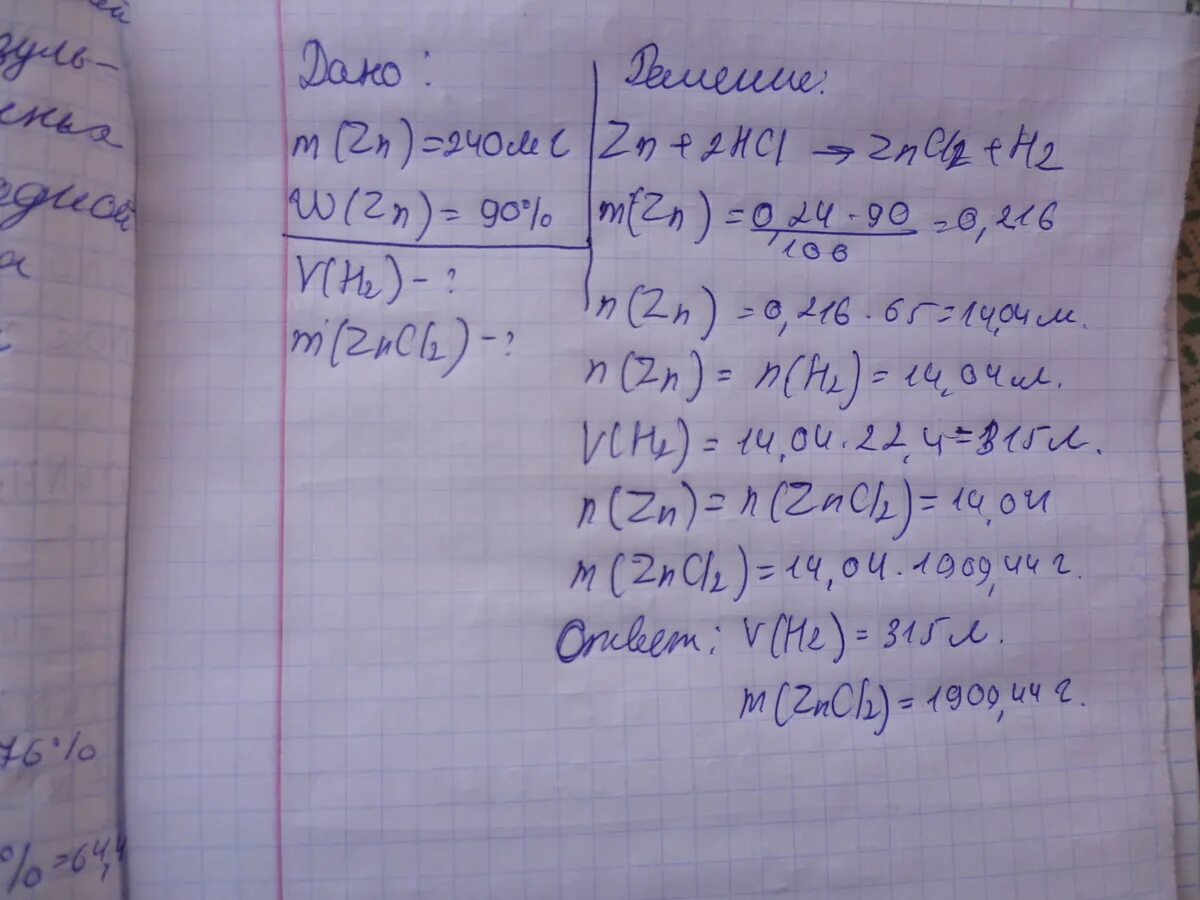 зуль-
адной
76%
% = 64,4
Дано:
m(Zn) = 240мг
W(Zn) = 90%
V(H2) - ?
m(ZnCl2) - ?
Решение:
Zn + 2HCl → ZnCl2 + H2
m(Zn) = 0,24 · 90 / 100 = 0,216
n(Zn) = 0,216 · 65 = 14,04м.
n(Zn) = n(H2) = 14,04м.
V(H2) = 14,04 · 22,4 = 315л.
n(Zn) = n(ZnCl2) = 14,04
m(ZnCl2) = 14,04 · 1909,44 г.
Ответ: V(H2) = 315л.
m(ZnCl2) = 1909,44 г.